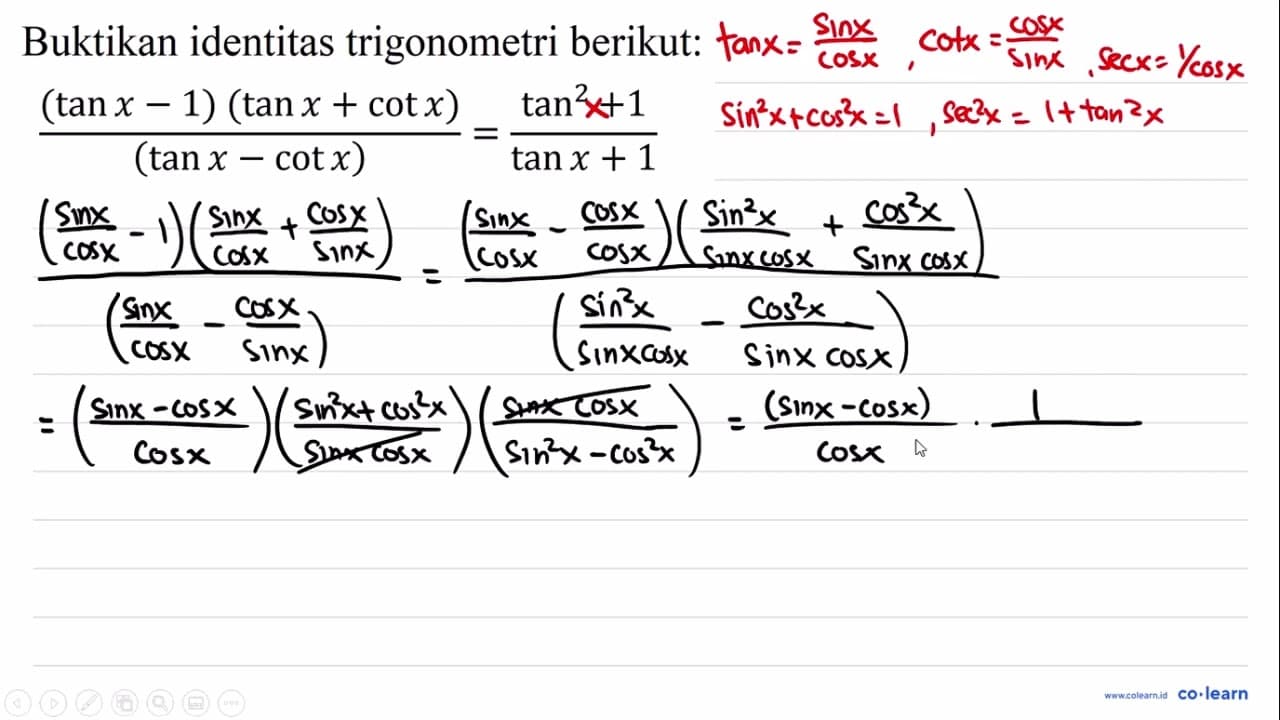 Buktikan identitas trigonometri berikut: tanx = sinx/cosx , cotx = cosx/sinx , secx = 1/cosx
(tan x − 1) (tan x + cot x) / (tan x − cot x) = tan²x+1 / tan x + 1
sin²x + cos²x = 1 , sec²x = 1 + tan²x
(sinx/cosx − 1)(sinx/cosx + cosx/sinx) / (sinx/cosx − cosx/sinx) = (sinx/cosx − cosx/cosx)(sin²x/sinx cosx + cos²x/sinx cosx) / (sin²x/sinx cosx − cos²x/sinx cosx)
= (sinx − cosx/cosx)(sin²x + cos²x/sinx cosx)(sinx cosx/sin²x − cos²x) = (sinx − cosx)/cosx · 1/
www.colearn.id co·learn